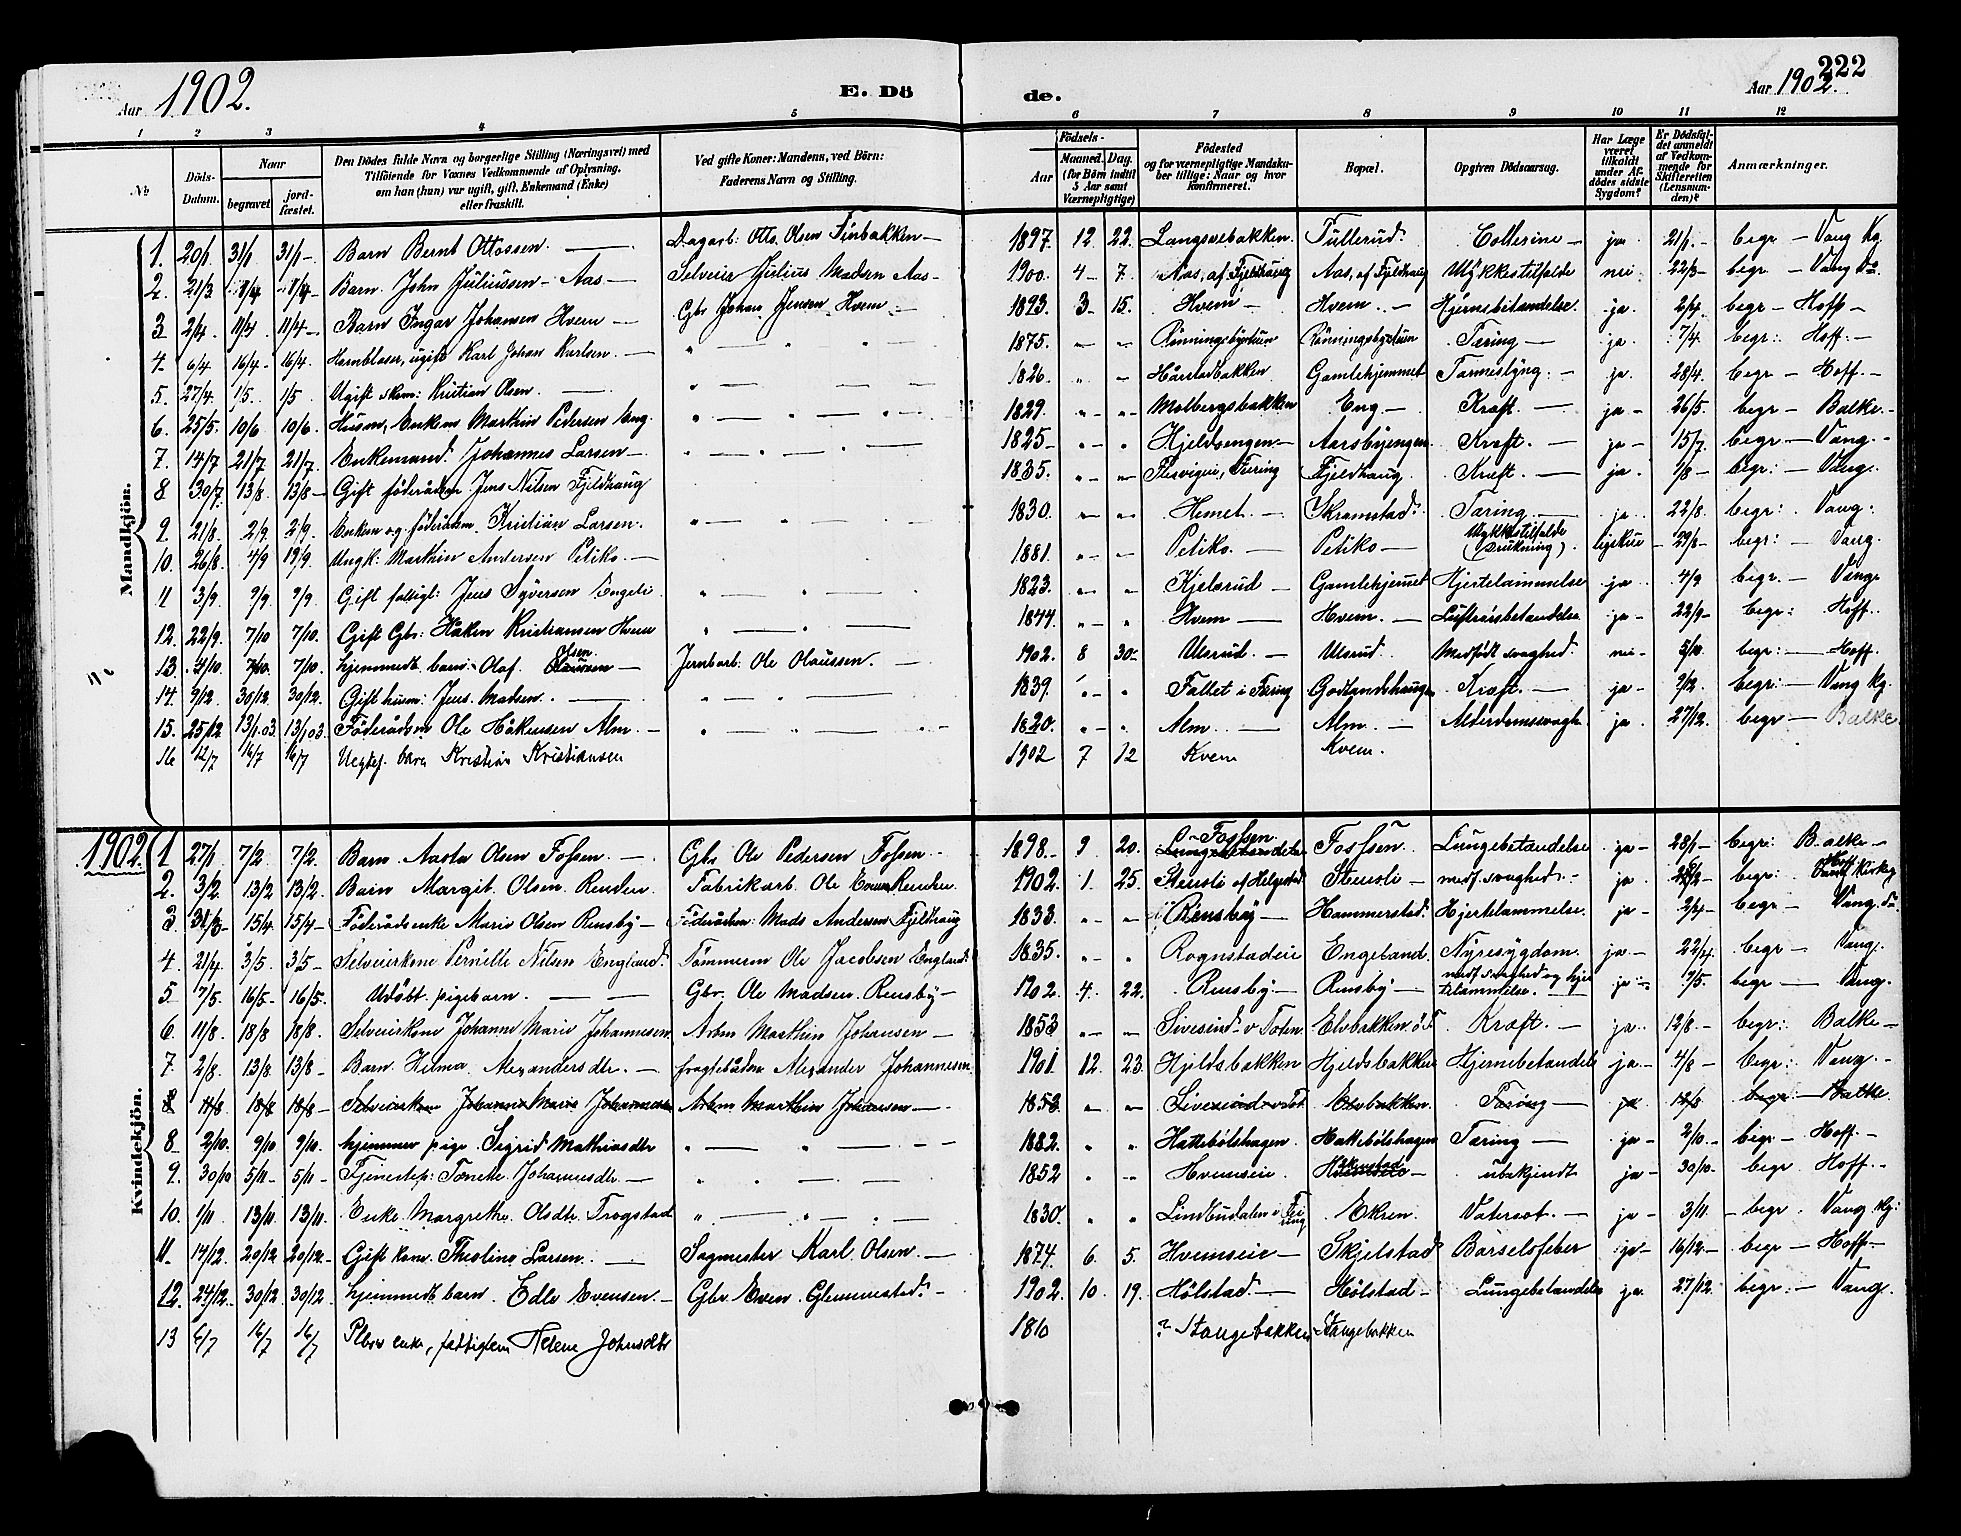 Aar 1902. E. Dö de. Aar 1902. 222
1 2 3 4 5 6 7 8 9 10 11 12
No Döds-Datum. Naar begravet jordfæstet. Den Dödes fulde Navn og borgerlige Stilling (Næringsvei) med Tilföiende for Voxnes Vedkommende af Oplysning, om han (hun) var ugift, gift, Enkemand (Enke) eller fraskilt. Ved gifte Koner: Mandens, ved Börn: Faderens Navn og Stilling. Födsels- Aar Maaned. Dag. (for Börn indtil 5 Aar samt Værnepligtige) Födested og for værnepligtige Mandskaber tillige: Naar og hvor konfirmeret. Bopæl. Opgiven Dödsaarsag. Har Læge været tilkaldt under Afdödes sidste Sygdom? Er Dödsfaldet anmeldt af Vedkommende for Skifteretten (Lensmanden)? Anmærkninger.
Mandkjön.
1. 20/1 31/1 31/1 – Barn Bernt Ottossen. — Dagarb: Otto Olsen Finbakken – 1897. 12 22. Langsvebakken. Tullerud. Collerine – ja 21/1 – begr – Vang Kg.
2. 21/3 1/4 1/4 – Barn. John Juliussen – Aas – Selveier Julius Madsen Aas – 1900. 4 – 7. Aas, af Fjeldhaug Aas, af Fjeldhaug Ulykkestilfælde nei 22/3 – begr – Vang Do
3 2/4. 11/4 11/4 – Barn Ingar Johansen Hvem – Gbr Johan Jensen Hvem – 1893. 3 – 15. Hvem – Hvem – Hjernebetændelse. ja. 2/4 begr – Hoff –
4 – 6/4 16/4 – 16/4. Hornblaser, ugift Karl Johan Karlsen. — " — 1875. " " Rönningsbystuen Rönningsbystuen Tæring – ja. 7/4 begr: Hoff. –
5. 27/4. 1/5. 1/5 Ugift skom: Kristian Olsen. — " — 1826. " – Hårstadbakken Gamlehjemmet – ja. 28/4. begr – Hoff. –
6. 25/5. 10/6 10/6. Husm, Enkem Marthin Pedersen Eng " — 1829. " – " Molbergsbakken Eng – Kræft. – ja – 26/5 begr – Balke. –
7. 14/7 21/7 21/7. Enkemand. Johannes Larsen – " — 1825 – " – " Hjeldsengen – Aarsbyengen. Kræft. – ja – 15/7 begr – Vang. –
8 30/7. 13/8. 13/8 – Gift föderådsm Jens Nilsen Fjeldhaug 1835. " – Fjeldhaug. Kræft. – ja. 1/8 – begr: – Vang.
9. 21/8. 2/9. 2/9. Enkem og föderådsm. Kristian Larsen. " — 1830. " – " Hemet – Skramstad. Tæring – ja. 22/8. begr: Vang.
10. 26/8. 4/9 19/9. Ungk: Marthin Andersen Petiko. – 1881. " – Petiko. – Petiko – Ulykkestilfælde (Drukning). ligskue – 29/8 – begr: – Vang.
11 3/9 9/9. 9/9. Gift fattigl: Jens Syversen Engeli. " — 1823. " – " Kjelsrud – Gamlehjemmet Hjertelammelse ja. 4/9 begr. – Vang.
12. 22/9. 7/10 7/10. Gift Gbr: Håken Kristiansen Hvem " — 1844. " – " Hvem – Hvem. – Luftrörsbetændelse ja – 22/9 – begr: Hoff.
13. 4/10. 7/10. 7/10. hjemmedt. barn. Olaf Olsen – Jernbarb: Ole Olaussen. – 1902. 8 30 – Ulsrud. – Ulsrud. Medfödt svaghed. nei – 5/10. begr: – Hoff.
14. 9/12 30/12 30/12. Gift husm: Jens Madsen. — " — 1839. " – " Fallet i Færing Godlandshaugen Kræft. – ja – 9/12. begr: – Vang Kg.
15. 25/12 13/1.03. 13/1 03. Föderådsm Ole Håkensen Alm. – " — 1820. " – " Alm – Alm. – Alderdomssvaghe ja. 27/12. begr – Balke.
16 12/7 16/7 16/7 Uegtef. barn Kristian Kristiansen 1902 7 12 Kvem Kvem.
1902.
Kvindekjön.
1 27/1 7/2 7/2. Barn. Aasta Olsen Fossen. – Gbr Ole Pedersen Fossen. – 1898. 9 20. Fossen. Lungebetændelse Fossen Lungebetændelse ja – 28/1 – begr: Balke –
2. 3/2. 13/2 13/2. Barn Margit. Olsen. Renden. – Fabrikarb. Ole Renden. 1902. 1. 25. Stensli af Helgestad Stensli – medf. svaghed. – ja. begr: Hoff Kirkeg
3 31/3 – 15/4. 15/4 – Föderådsenke Marie Olsen Rensby – Föderådsm: Mads Andersen Fjeldhaug 1833. " – " Rensby – Hammerstad. Hjertelammelse. ja – 2/4 – begr – Vang. Do
4. 21/4 3/5. 3/5 – Selveierkone Pernille Nilsen England. Tömmerm Ole Jacobsen England. 1835. " " Rognstadeie Engeland. Nyresygdom. ja. – 22/4. begr – Vang.
5 7/5. 16/5 – 16/5. Udöbt. pigebarn. — Gbr. Ole Madsen. Rensby – 1902. 4. 22. Rensby – Rensby – medf. svaghed og hjertelammelse. – ja – 9/5. begr – Vang.
6. 11/8. 18/8 18/8. Selveierkone Johanne Marie Johannesen. Arbm Marthin Johansen – 1853 " – Sivesind v Toten Elvbakken ö. T Kræft. – ja. 12/8 – begr: Balke –
7. 2/8. 13/8. 13/8 – Barn. Hilma. Alexandersdtr. – Alexander Johannesen. 1901. 12. 23. Hjeldsbakken Hjeldsbakken Hjernebetændelse ja – 4/8 – begr: Vang. –
8 11/8 18/8 18/8 – Selveierkone Johanne Marie Johannesen Arbm Marthin Johansen – 1853 " – " Sivesind v Tot Elvbakken. Tæring – ja 12/8 begr: – Balke.
8 – 2/10. 9/10 9/10. hjemmev pige. Sigrid Mathiasdtr " — 1882. " " Hattebölshagen. Hattebölshagen Tæring – ja – 2/10. – begr – Hoff. –
9. 30/10 5/11 – 5/11 – Tjenestep: Tonette Johannesdtr. – " — 1852 " – " Hvemseie. ubekjendt ja – 30/10. – begr. Hoff. –
10. 1/11 13/11. 13/11. Enke. Margrethe. Olsdtr. Frogstad " — 1830. " " Lindbudalen i Feiring Ekren. Vatersot. – ja – 3/11 – begr. Vang kg.
11 – 14/12. 20/12 20/12. – Gift kone. Theoline Larsen. – Sagmester Karl. Olsen. – 1874. 6. 5. Hvemseie – Skjelstad Barselsfeber ja – 16/12. – begr – Hoff –
12. 24/12. 30/12 30/12. hjemmedt. barn. Edle Evensen. – Gbr. Even. Glemmestad. – 1902. 10. 19. Hölstad. – Hölstad – Lungebetændelse ja. 27/12. begr – Vang.
13 6/7 16/7 16/7 enke, fattiglem Helene Johnsdtr 1810 ? Stangebakken – Stangebakken